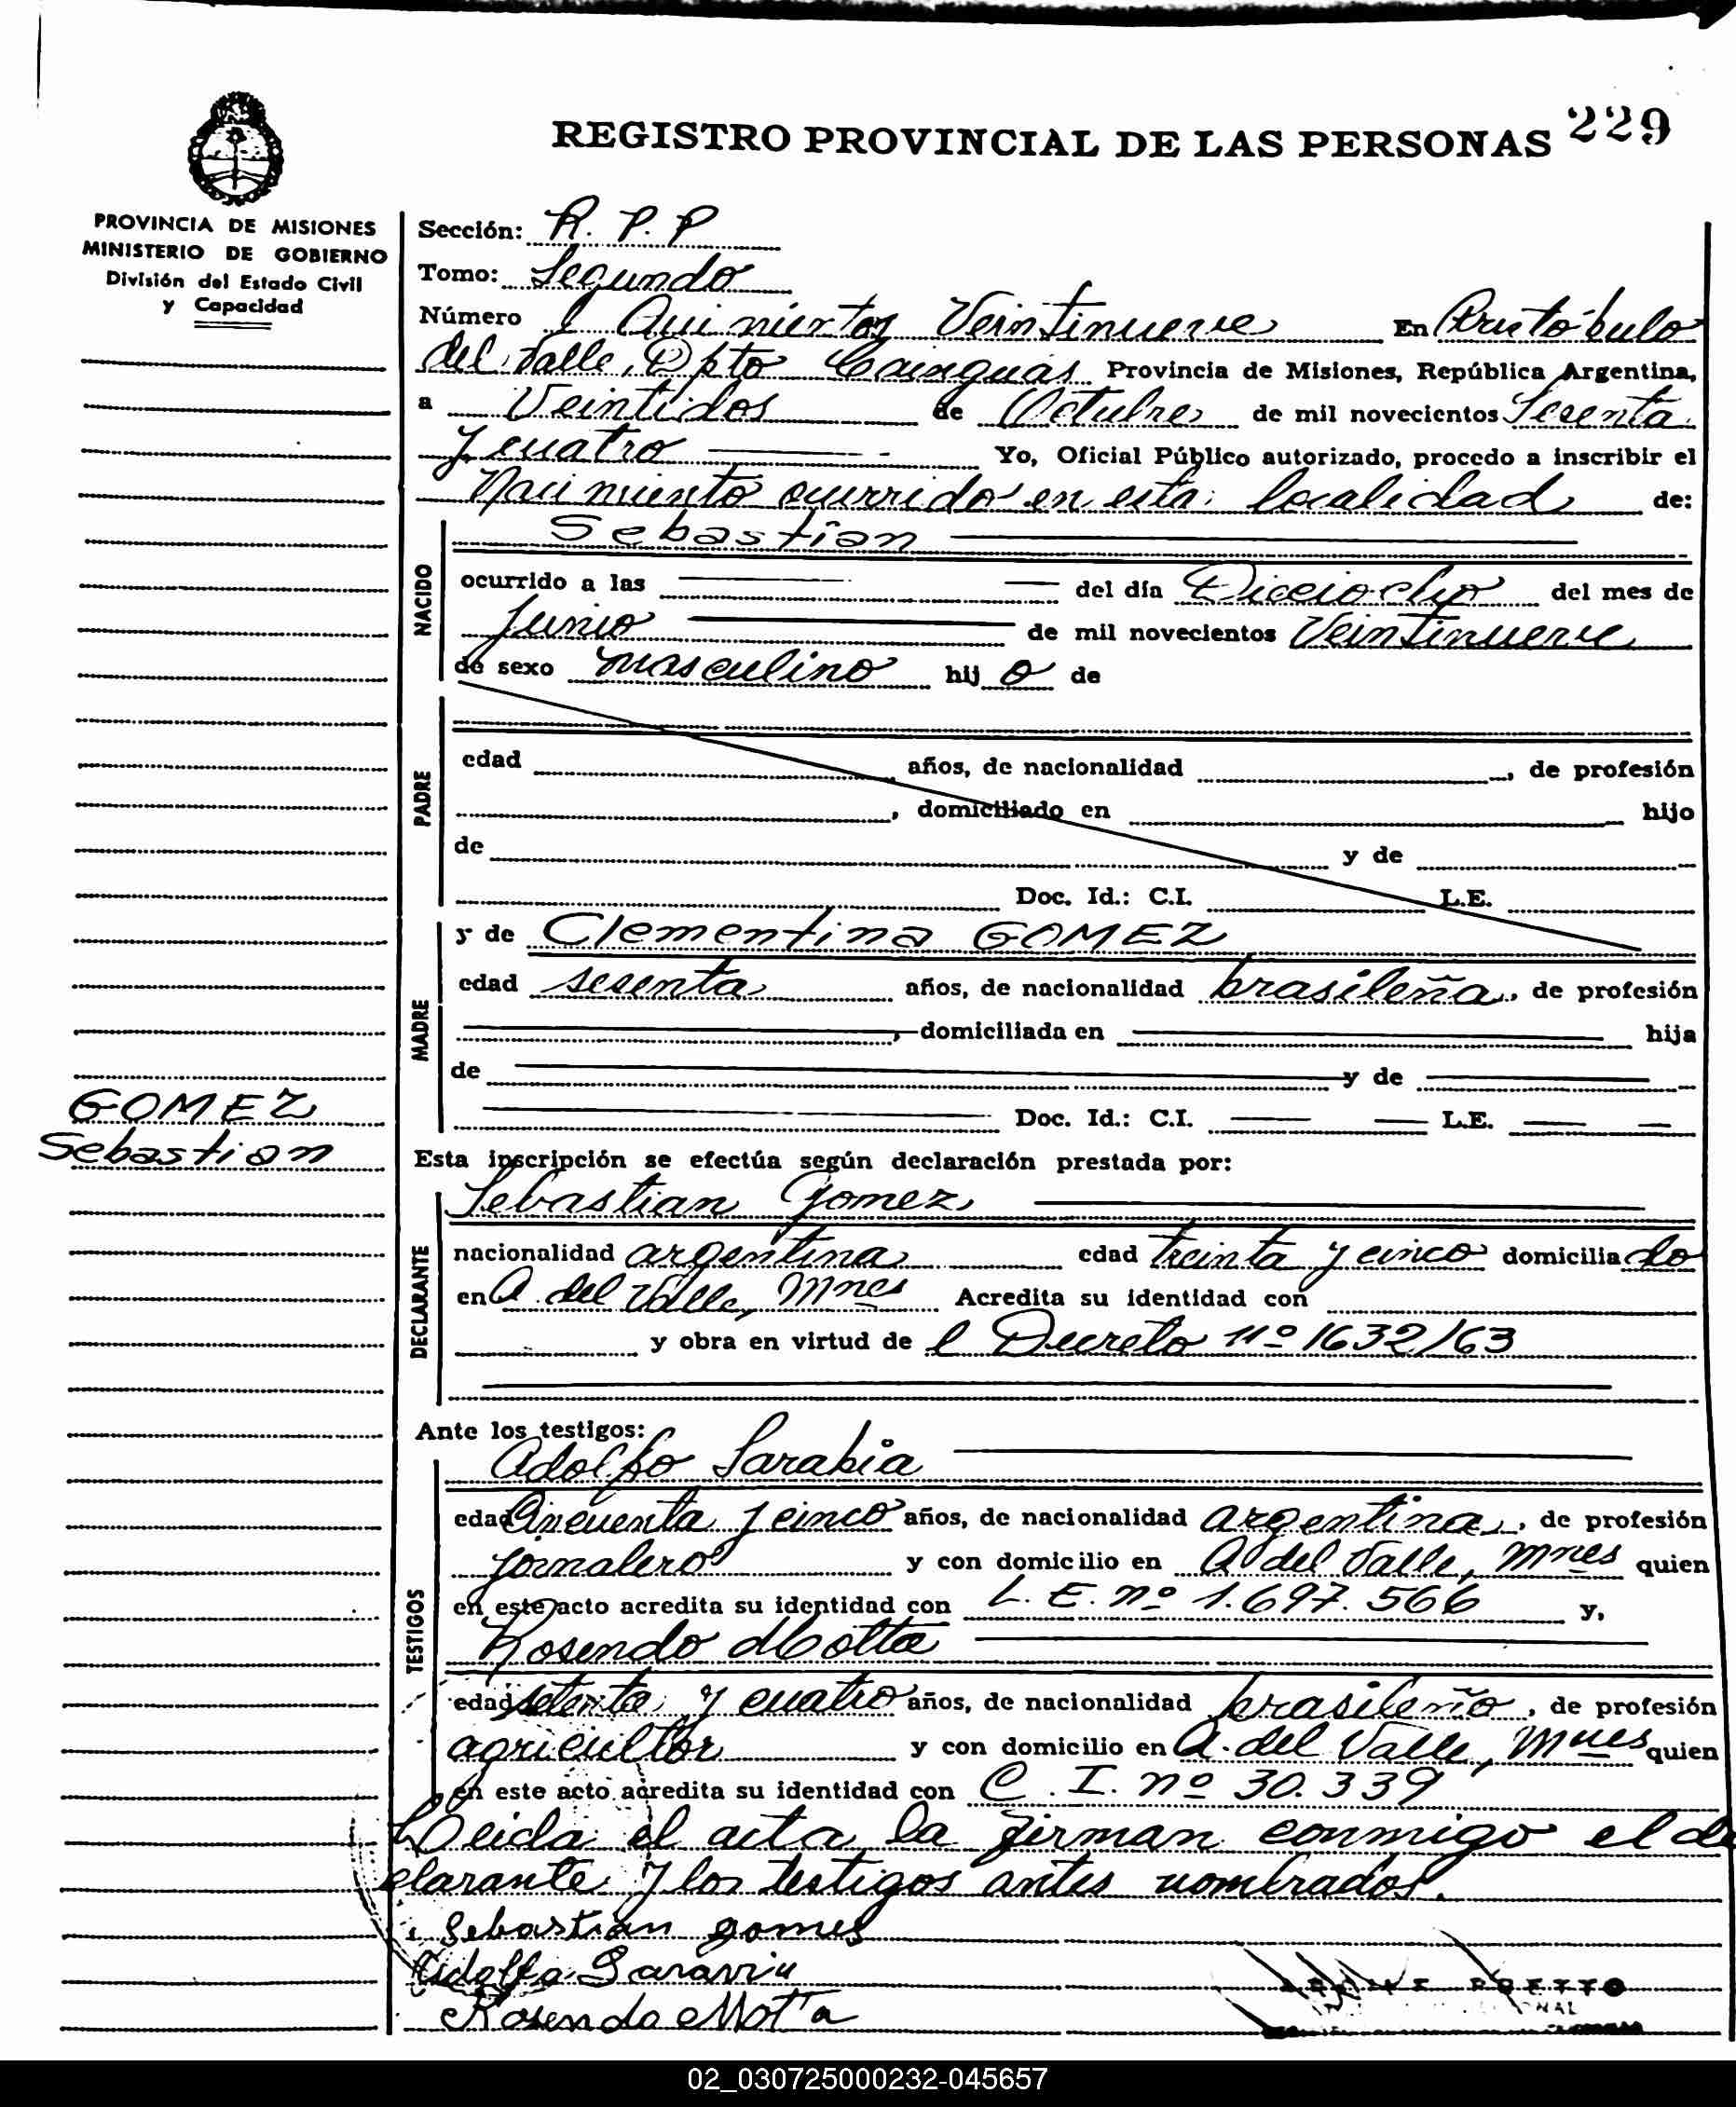 REGISTRO PROVINCIAL DE LAS PERSONAS 229
PROVINCIA DE MISIONES
MINISTERIO DE GOBIERNO
División del Estado Civil
y Capacidad
Sección: R. P. P
Tomo: Segundo
Número Quinientos Veintinueve En Aristóbulo
del Valle, Dpto Cainguás Provincia de Misiones, República Argentina,
a Veintidos de Octubre de mil novecientos Sesenta
y cuatro Yo, Oficial Público autorizado, procedo a inscribir el
Nacimiento ocurrido en esta localidad de:
NACIDO
Sebastian
ocurrido a las del día Dieciocho del mes de
Junio de mil novecientos Veintinueve
de sexo masculino hijo de
PADRE
edad años, de nacionalidad , de profesión
, domiciliado en hijo
de y de
Doc. Id.: C.I. L.E.
MADRE
y de Clementina GOMEZ
edad sesenta años, de nacionalidad brasileña, de profesión
, domiciliada en hija
de y de
Doc. Id.: C.I. L.E.
GOMEZ
Sebastian
Esta inscripción se efectúa según declaración prestada por:
DECLARANTE
Sebastian Gomez
nacionalidad argentina edad treinta y cinco domiciliado
en A. del Valle, Mnes Acredita su identidad con
y obra en virtud de l Decreto nº 1632/63
Ante los testigos:
TESTIGOS
Adolfo Sarabia
edad Cincuenta y cinco años, de nacionalidad argentina, de profesión
jornalero y con domicilio en A del Valle, Mnes quien
en este acto acredita su identidad con L. E. nº 1.697.566 y,
Rosendo Motta
edad setenta y cuatro años, de nacionalidad brasileño, de profesión
agricultor y con domicilio en A. del Valle, Mnes quien
en este acto acredita su identidad con C. I. nº 30.339
Leida el acta la firman conmigo el de
clarante y los testigos antes nombrados.
Sebastian gomes
Adolfo Saravia
Rosendo Motta
02_030725000232-045657